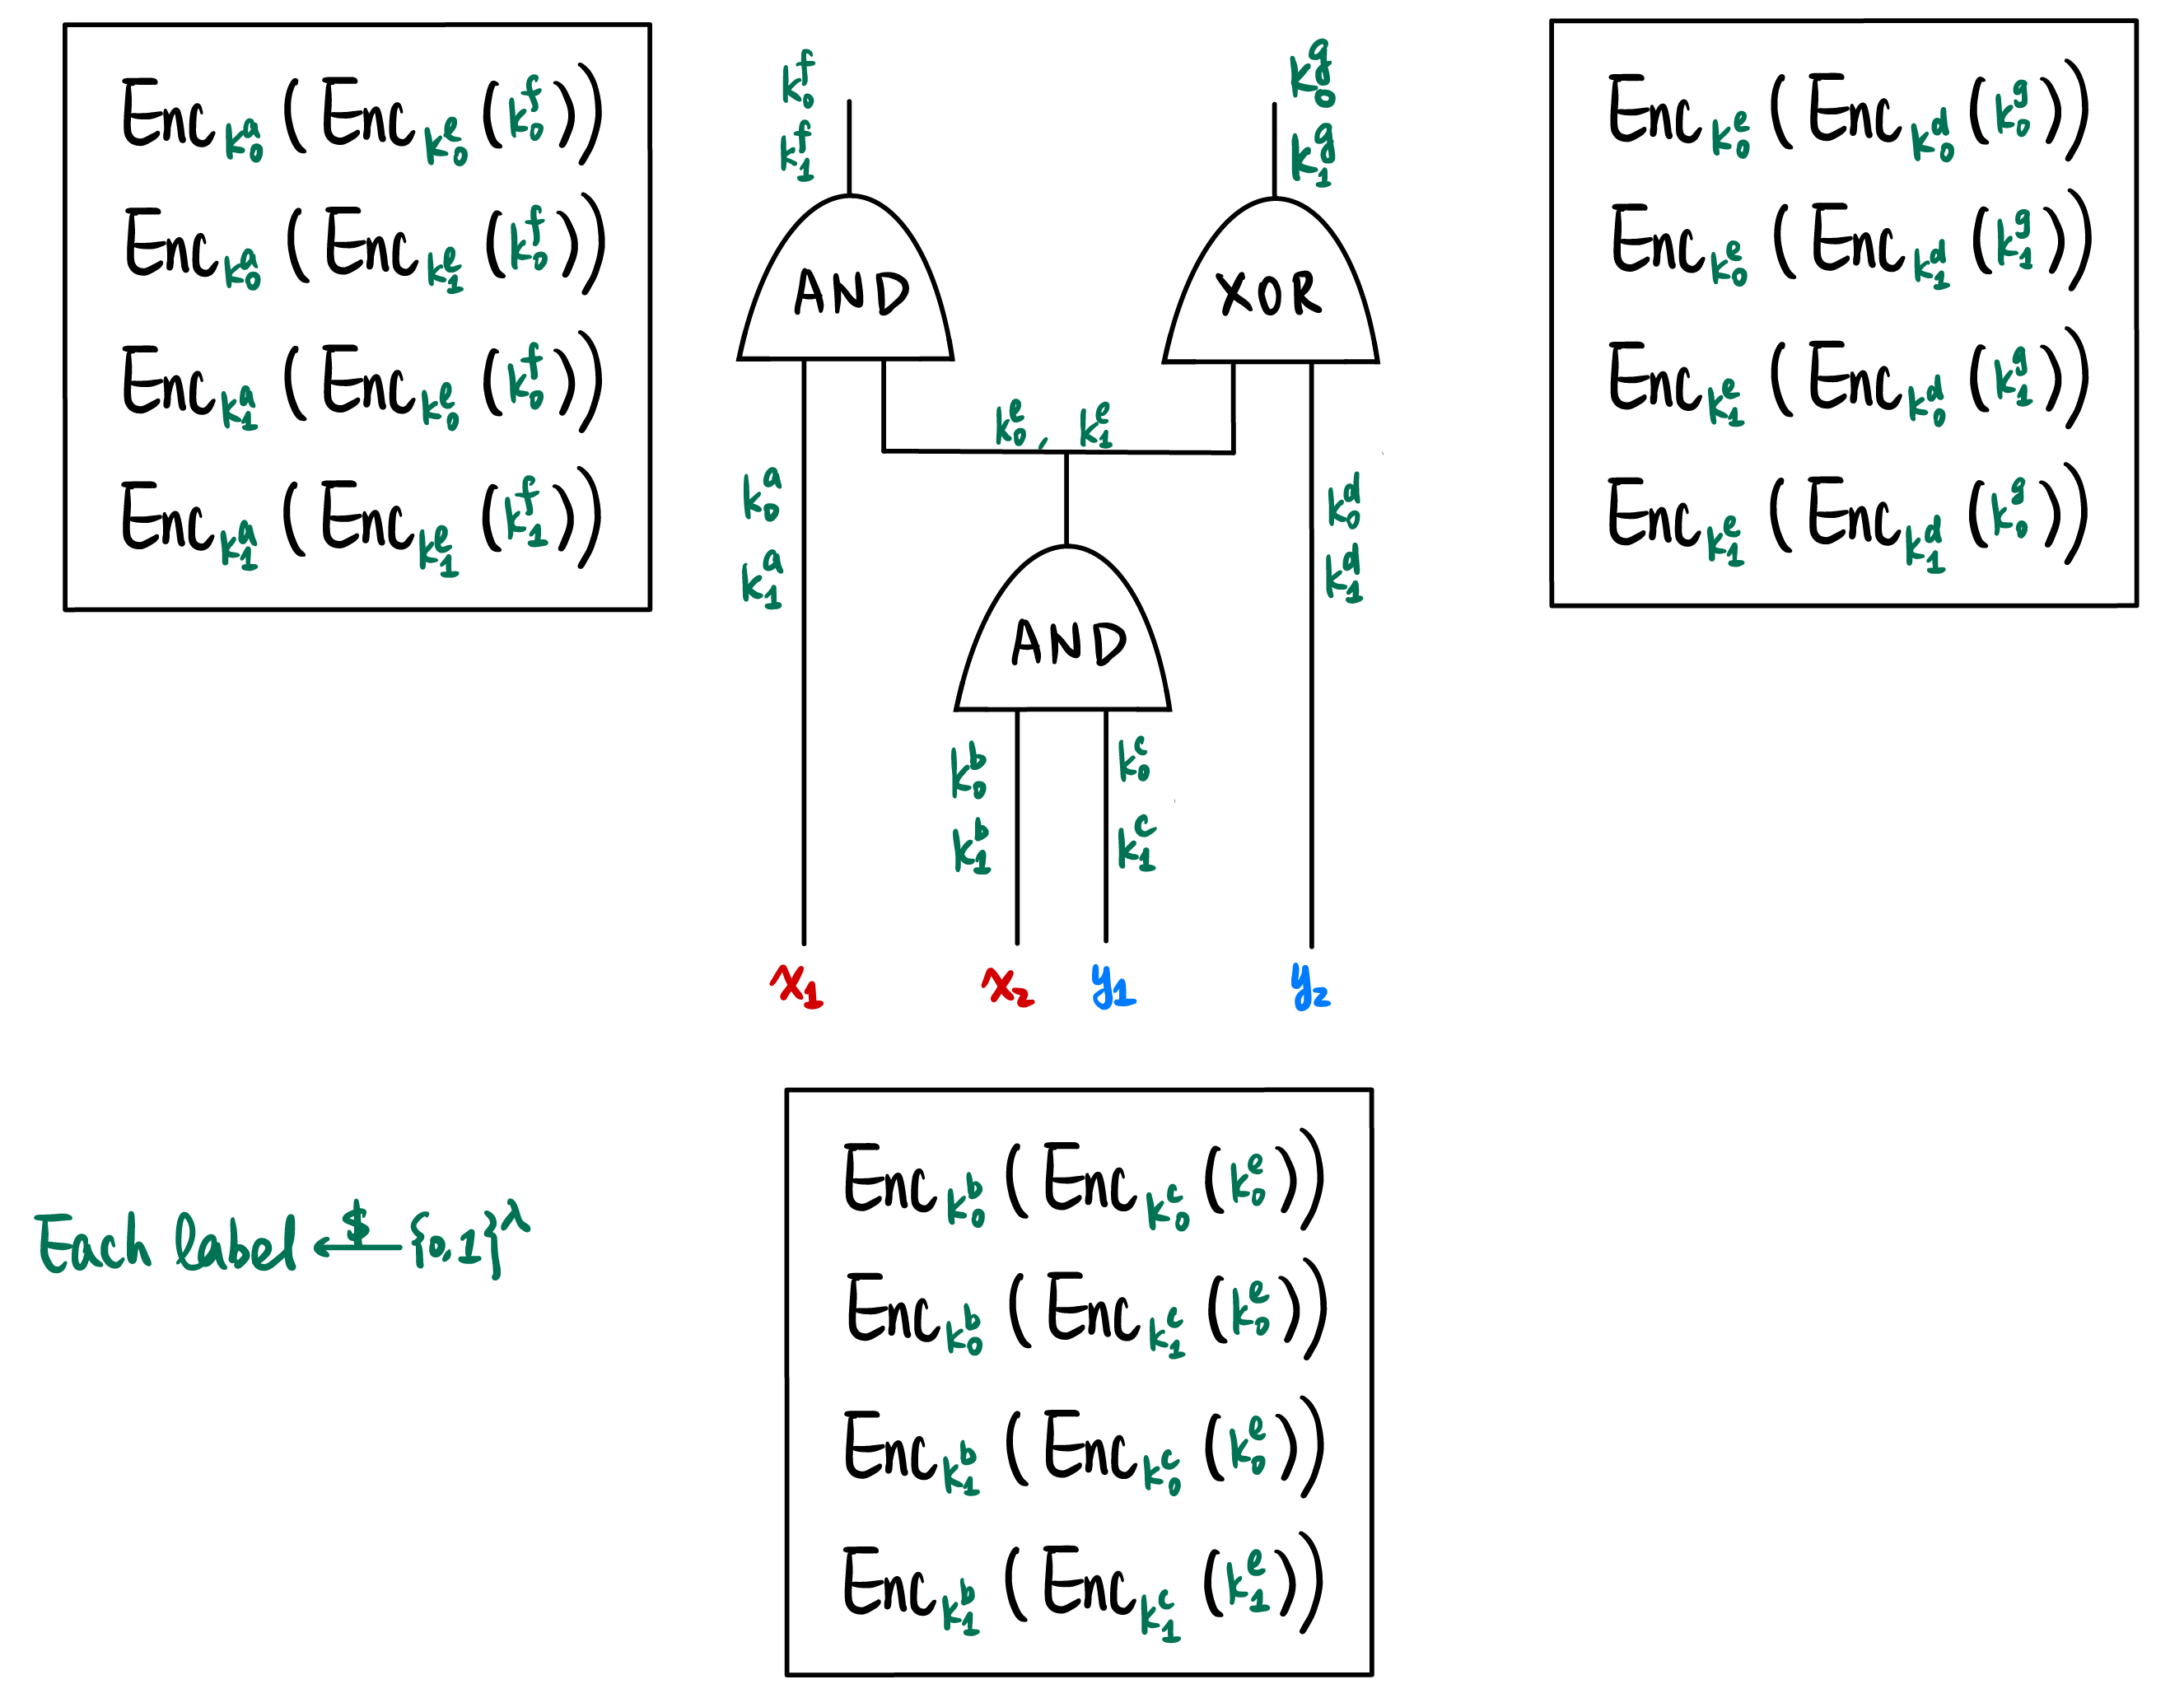 Enc_{k_0^a}(Enc_{k_0^e}(k_0^f))
Enc_{k_0^a}(Enc_{k_1^e}(k_0^f))
Enc_{k_1^a}(Enc_{k_0^e}(k_0^f))
Enc_{k_1^a}(Enc_{k_1^e}(k_1^f))
k_0^f
k_1^f
k_0^g
k_1^g
AND
XOR
k_0^e, k_1^e
k_0^a
k_1^a
k_0^d
k_1^d
AND
k_0^b
k_1^b
k_0^c
k_1^c
x_1 x_2 y_1 y_2
Enc_{k_0^e}(Enc_{k_0^d}(k_0^g))
Enc_{k_0^e}(Enc_{k_1^d}(k_1^g))
Enc_{k_1^e}(Enc_{k_0^d}(k_1^g))
Enc_{k_1^e}(Enc_{k_1^d}(k_0^g))
Each label ←$ {0,1}^λ
Enc_{k_0^b}(Enc_{k_0^c}(k_0^e))
Enc_{k_0^b}(Enc_{k_1^c}(k_0^e))
Enc_{k_1^b}(Enc_{k_0^c}(k_0^e))
Enc_{k_1^b}(Enc_{k_1^c}(k_1^e))